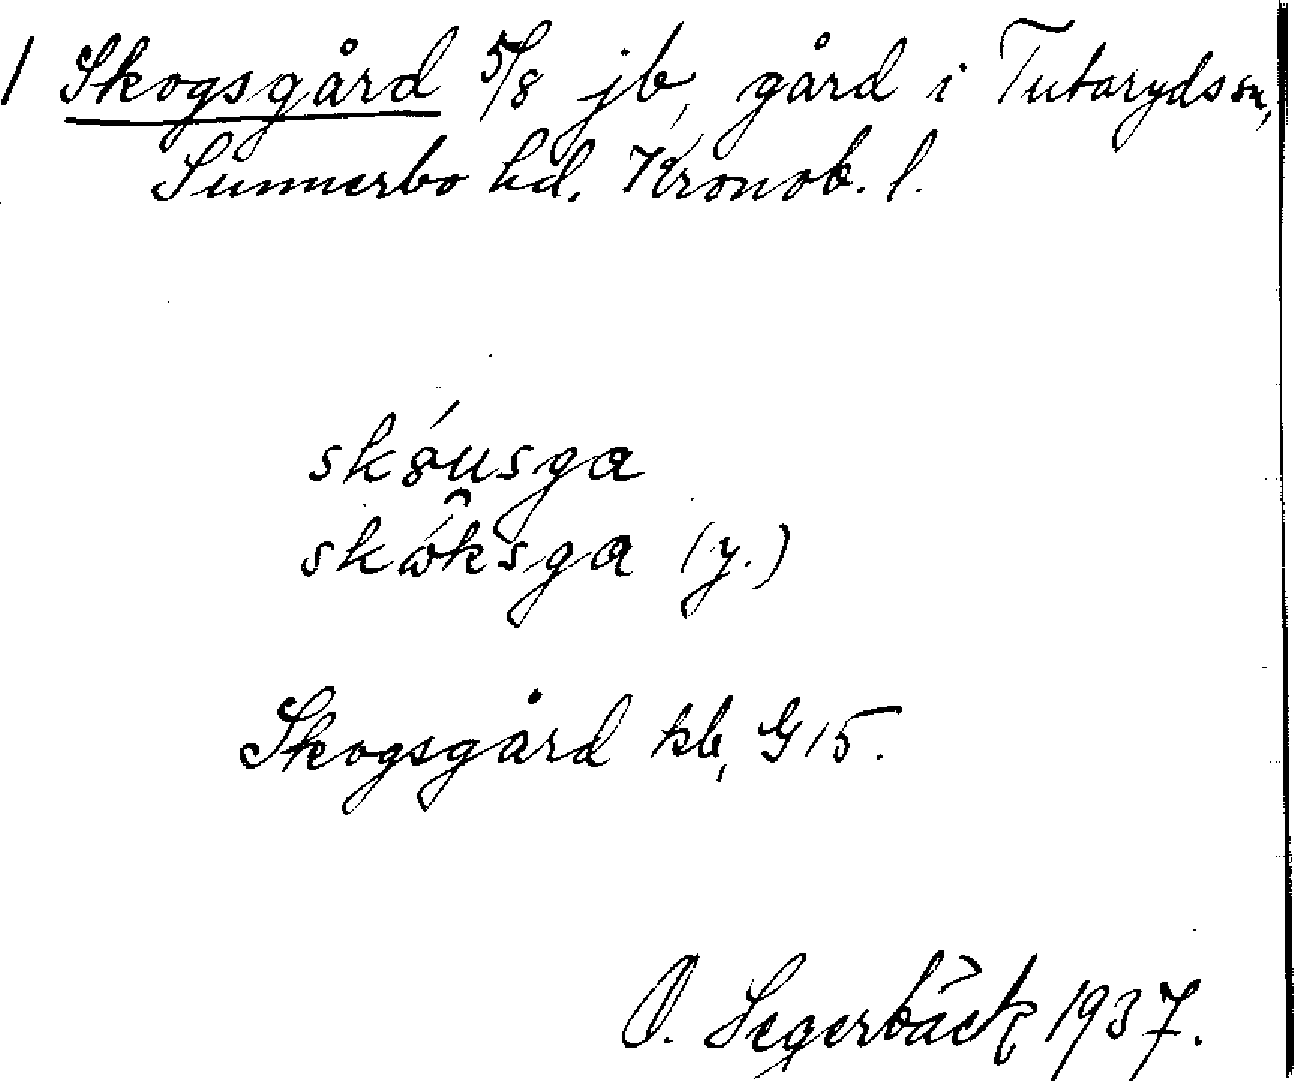 1 Skogsgård 5/8 jb, gård i Tutaryds sn,
Sunnerbo hd. Kronob. l.
skǒusga
skω̂ksga (y.)
Skogsgård kb, G 15.
O. Segerbäck 1937.